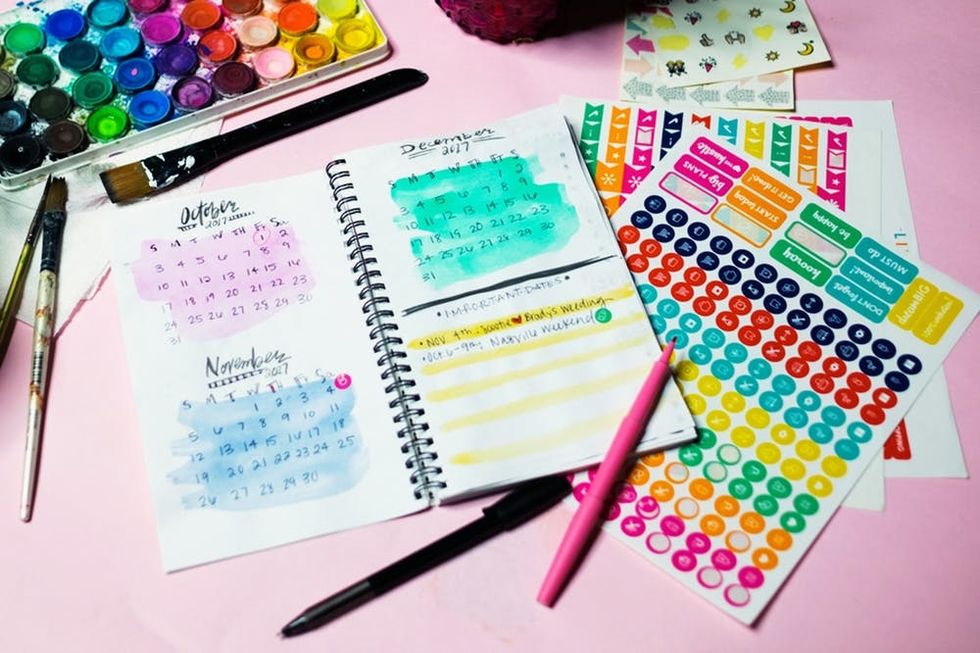 October
2017
S M T W TH F Sa
1 2
3 4 5 6 7 8 9
10 11 12 13 14 15 16
17 18 19 20 21 22 23
24 25 26 27 28 29 30
31
November
2017
S M T W TH Fr Sa
1 2 3 4
5 6 7 8 9 10 11
12 13 14 15 16 17 18
19 20 21 22 23 24 25
26 27 28 29 30
December
2017
S M T W Th Fr S
1 2
3 4 5 6 7 8 9
10 11 12 13 14 15 16
17 18 19 20 21 22 23
24 25 26 27 28 29 30
31
• IMPORTANT DATES •
• Nov 4th - Brady's Wedding
• Oct 6-9th Nashville Weekend
the hustle
big PLANS
GET it done!
START today
be happy
hooray
MUST do
important!
DON'T forget
dream BIG